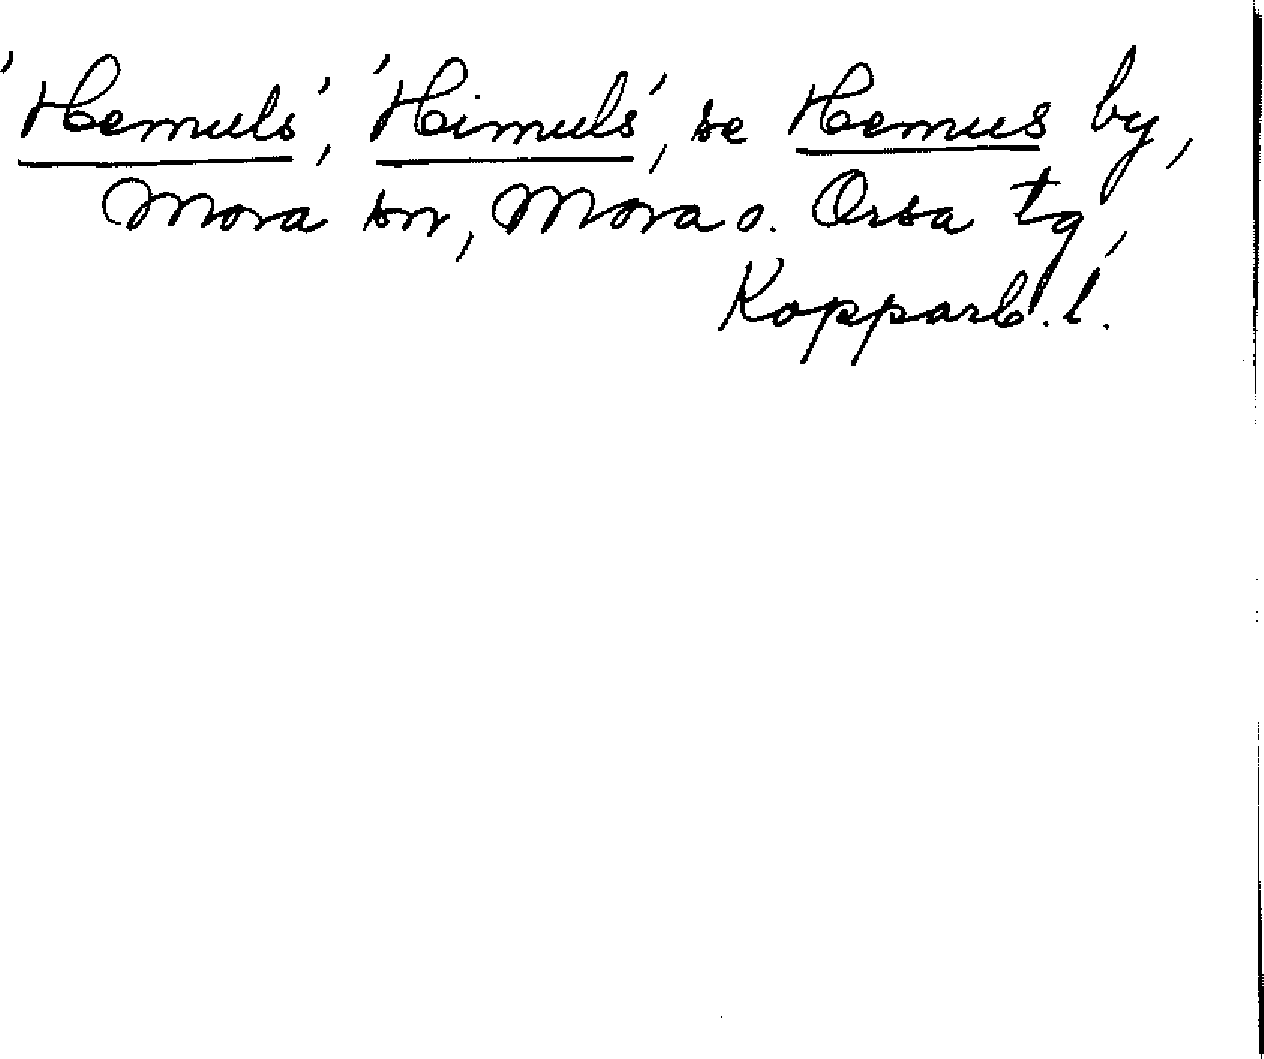 'Hemuls', 'Himuls', se Hemus by,
Mora sn, Mora o. Orsa tg,
Kopparb. l.